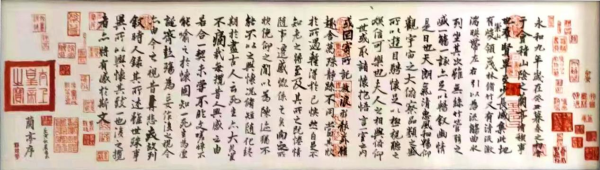 永和九年歲在癸丑暮春之初會
于會稽山陰之蘭亭脩禊事
也群賢畢至少長咸集此地
有崇山峻領茂林脩竹又有清流激
湍暎帶左右引以為流觴曲水
列坐其次雖無絲竹管弦之
盛一觴一詠亦足以暢敘幽情
是日也天朗氣清惠風和暢仰
觀宇宙之大俯察品類之盛
所以遊目騁懷足以極視聽之
娛信可樂也夫人之相與俯仰
一世或取諸懷抱悟言一室之內
或因寄所託放浪形骸之外雖
趣舍萬殊靜躁不同當其欣
於所遇暫得於己快然自足不
知老之將至及其所之既惓情
隨事遷感慨係之矣向之所
欣俛仰之間以為陳迹猶不
能不以之興懷況脩短隨化終
期於盡古人云死生亦大矣豈
不痛哉每攬昔人興感之由
若合一契未嘗不臨文嗟悼不
能喻之於懷固知一死生為虛
誕齊彭殤為妄作後之視今
亦由今之視昔悲夫故列
敘時人錄其所述雖世殊事
異所以興懷其致一也後之攬
者亦將有感於斯文
蘭亭序